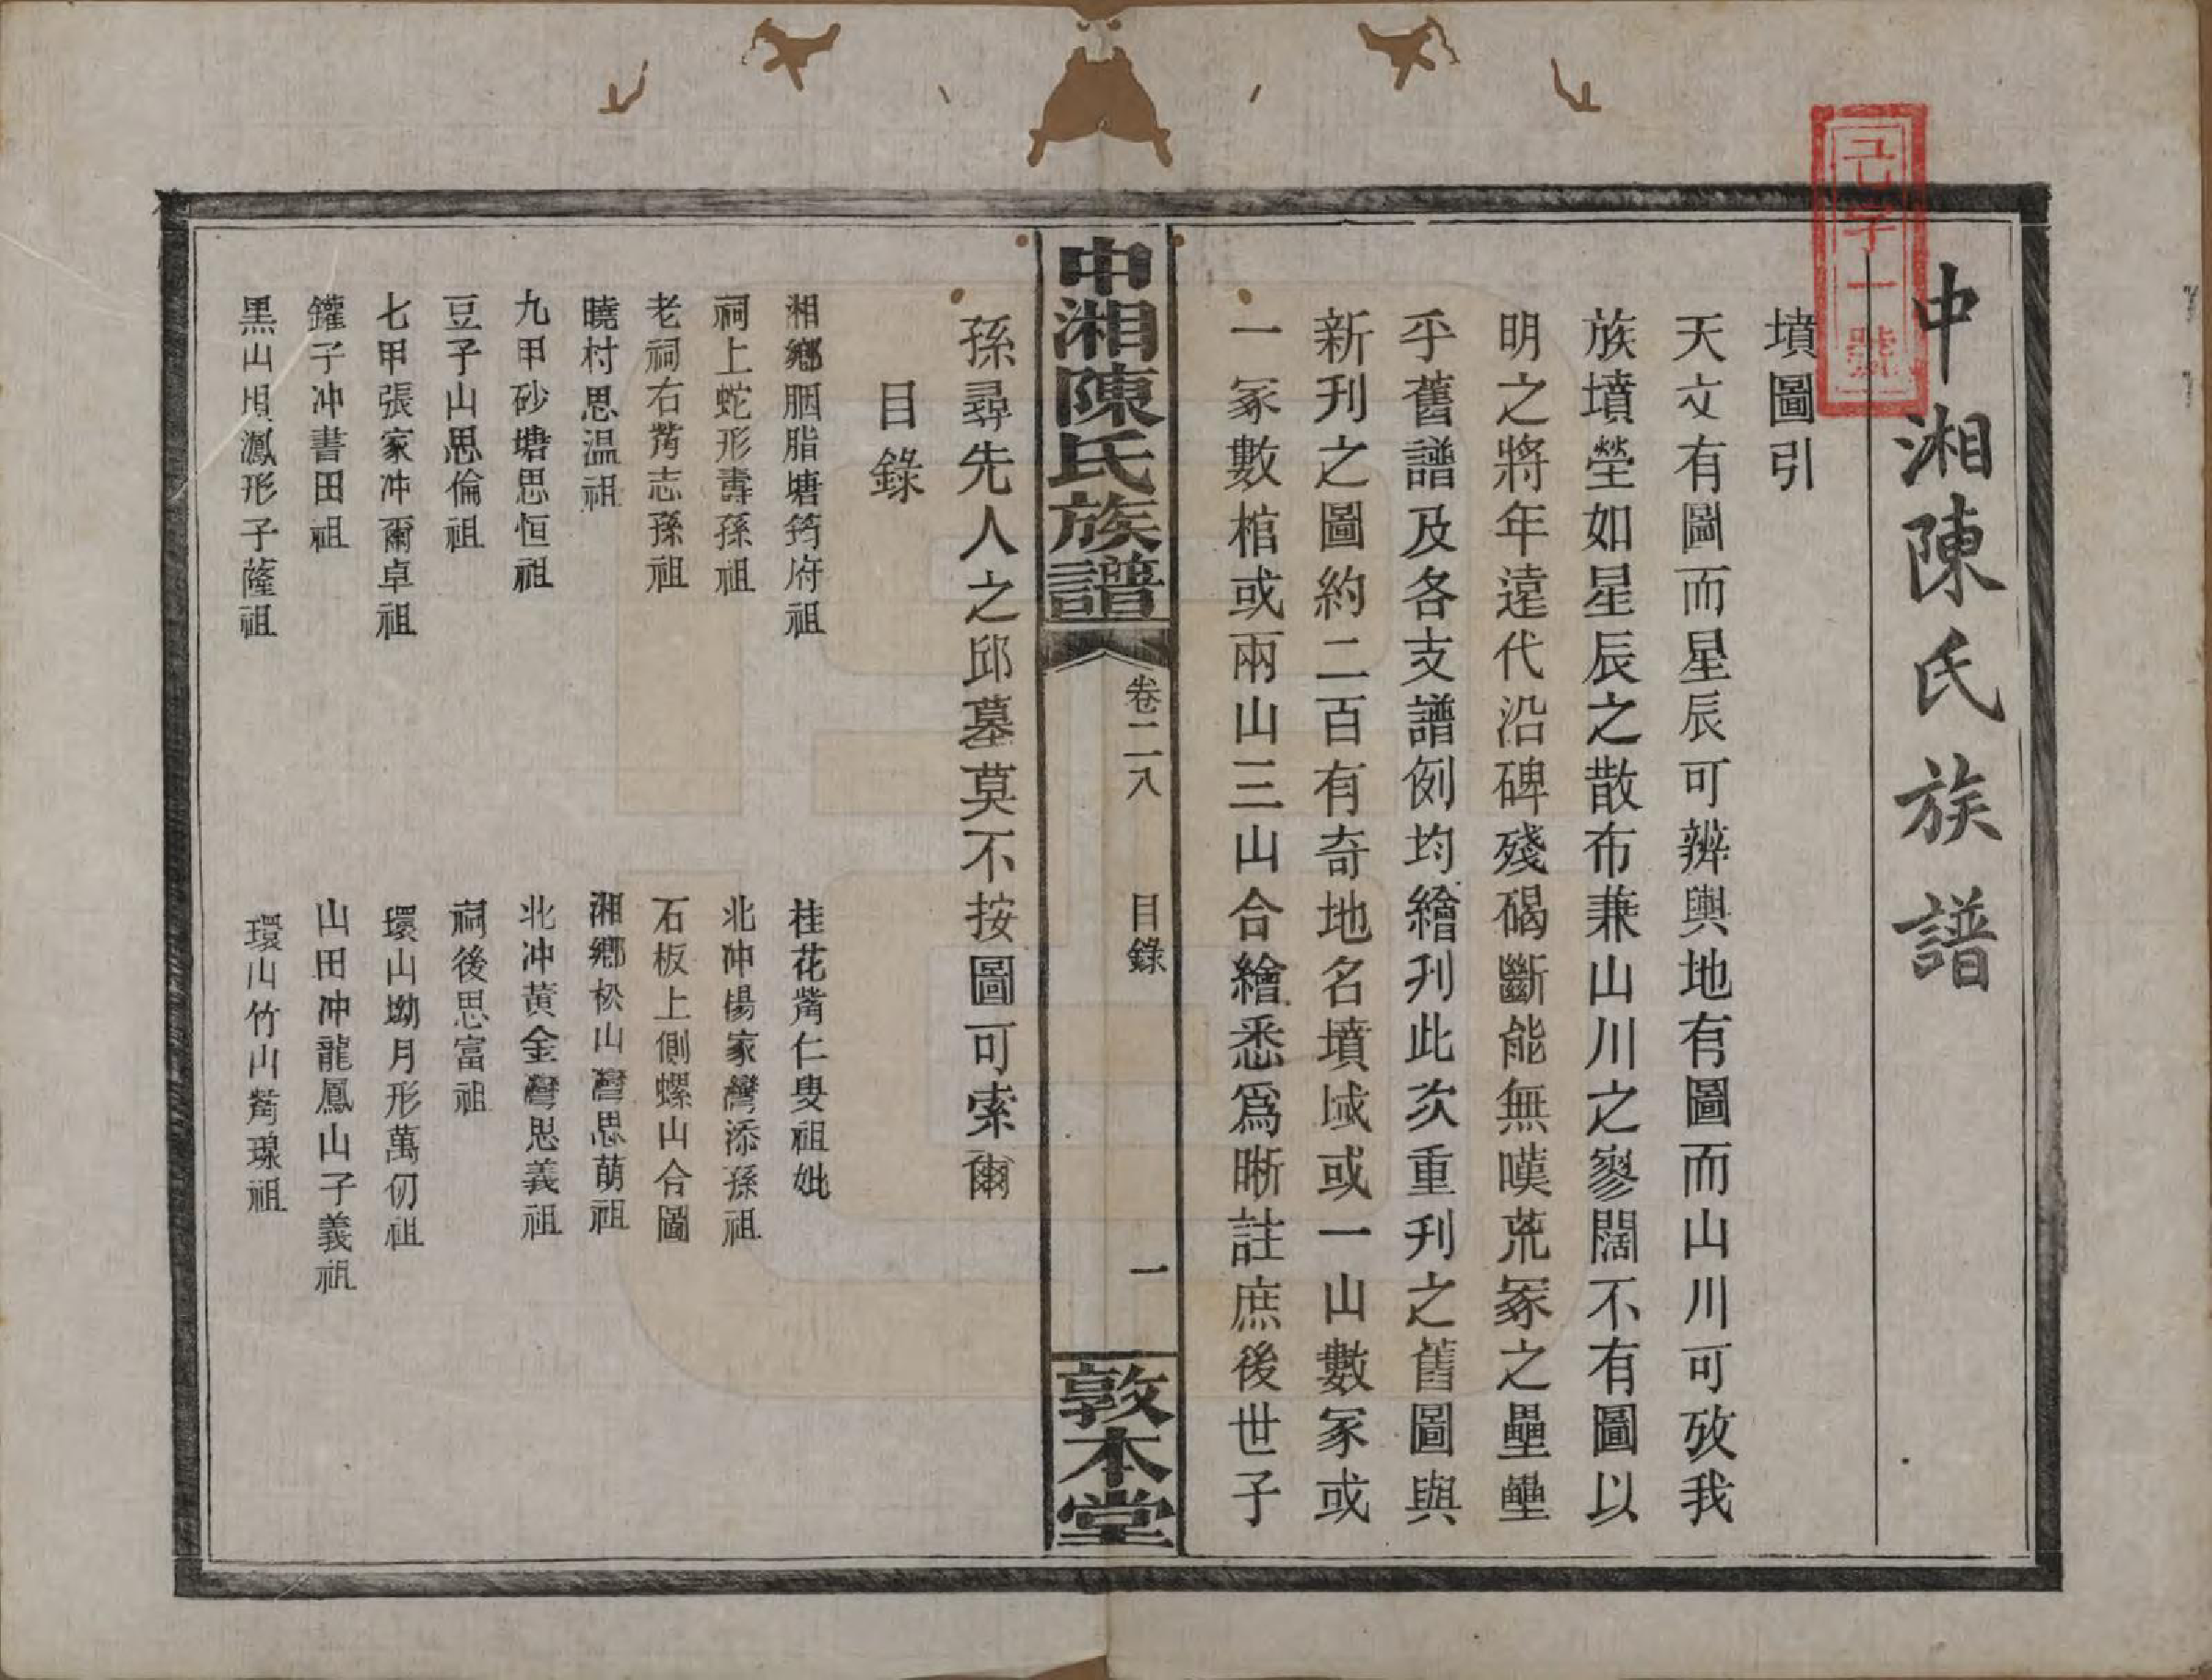 己字一號
中湘陳氏族譜
墳圖引
天文有圖而星辰可辨輿地有圖而山川可攷我
族墳塋如星辰之散布兼山川之寥闊不有圖以
明之將年遠代沿碑殘碣斷能無嘆荒冢之壘壘
乎舊譜及各支譜例均繪刋此次重刋之舊圖與
新刋之圖約二百有奇地名墳域或一山數冢或
一冢數棺或兩山三山合繪悉爲晰註庶後世子
中湘陳氏族譜
卷二八
目錄
一
敦本堂
孫尋先人之邱墓莫不按圖可索爾
目錄
湘鄉胭脂塘筠府祖
桂花觜仁叟祖妣
祠上蛇形壽孫祖
北冲楊家灣添孫祖
老祠右觜志孫祖
石板上側螺山合圖
曉村思温祖
湘鄉松山灣思萠祖
九甲砂塘思恒祖
北冲黄金灣思義祖
豆子山思倫祖
祠後思富祖
七甲張家冲爾卓祖
環山坳月形萬仞祖
鑵子冲書田祖
山田冲龍鳳山子義祖
黑山垻鳳形子薩祖
環山竹山觜璟祖